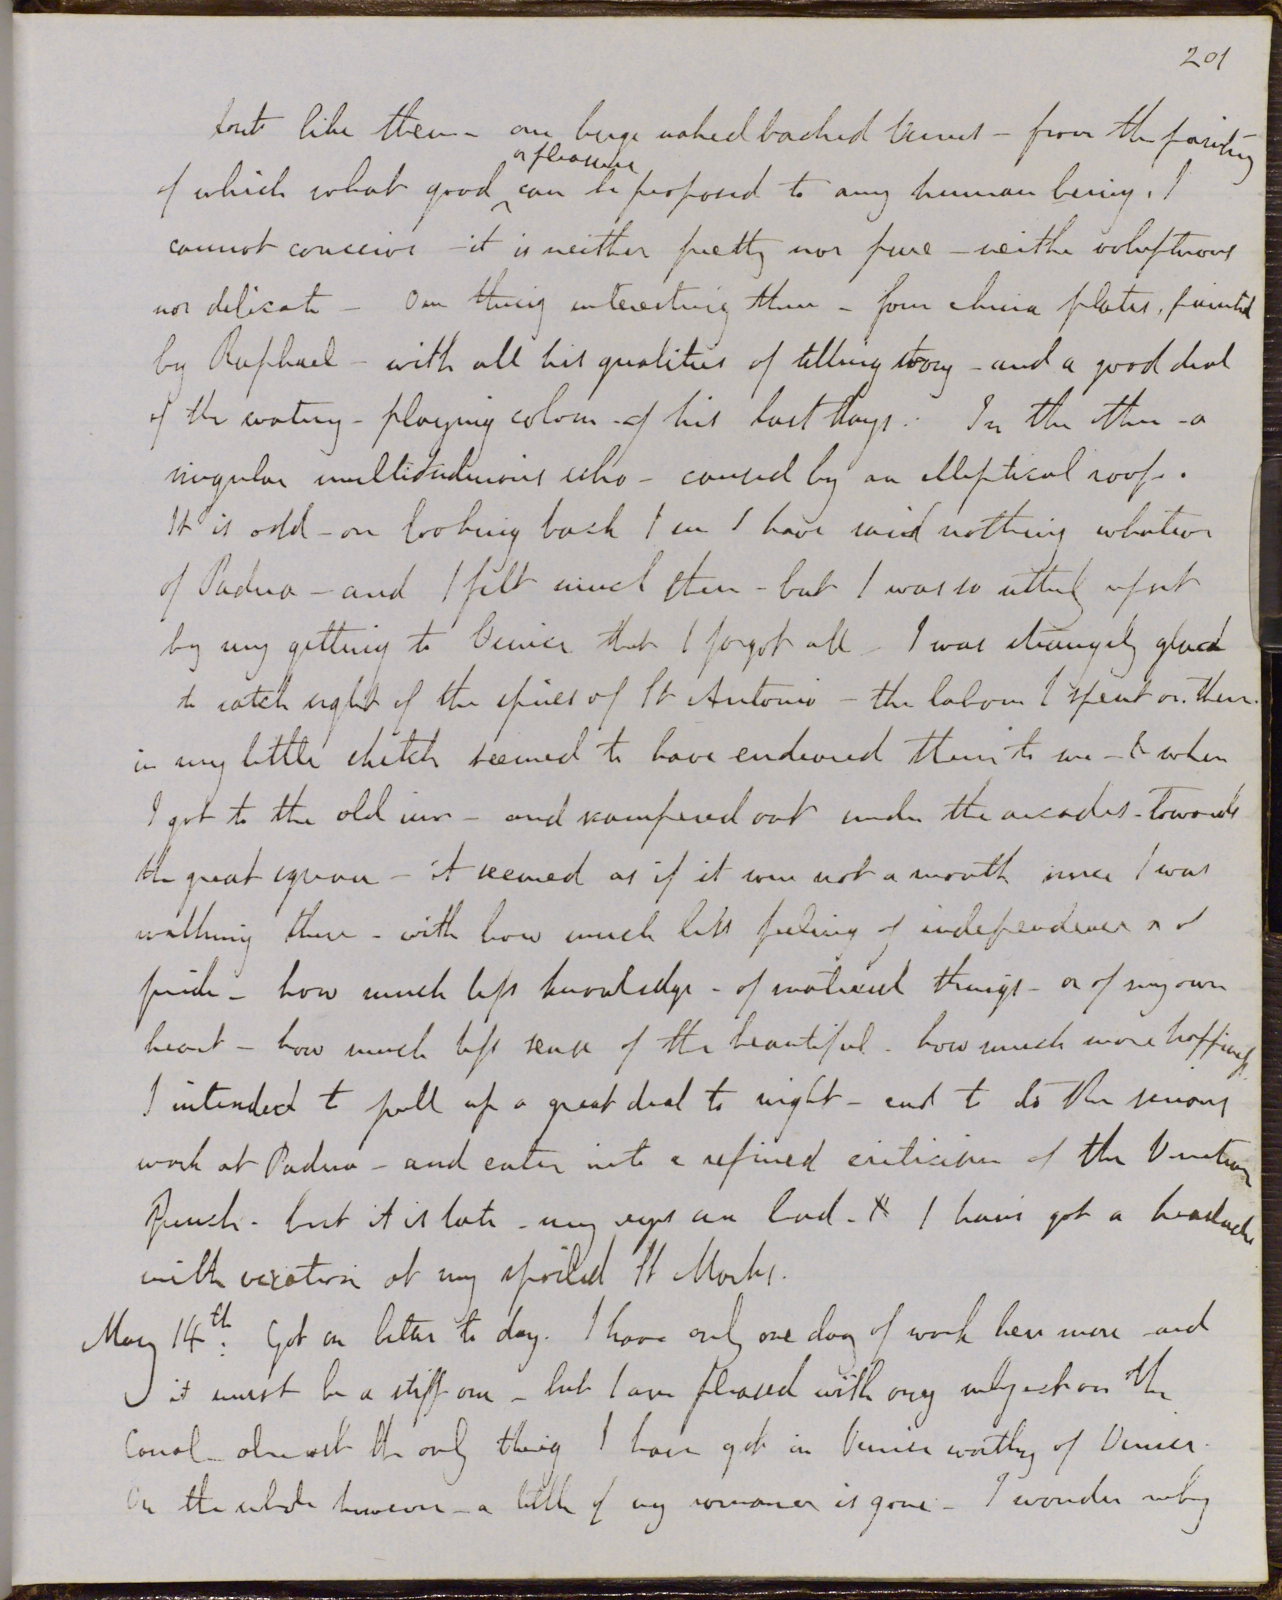 201
don't like them - one huge naked backed Venus - from the painting
or pleasure
of which what good can be proposed to any human being, I
cannot conceive - it is neither pretty nor pure - neither voluptuous
nor delicate - One thing interesting there - four china plates, painted
by Raphael - with all his qualities of telling story - and a good deal
of the watery - playing colour - of his last days. In the other - a
singular multitudinous echo - caused by an elliptical roof.
It is odd - on looking back I see I have said nothing whatever
of Padua - and I felt much there - but I was so utterly upset
by my getting to Venice that I forgot all - I was strangely glad
to catch sight of the spires of St Antonio - the labour I spent on them
in my little sketch seemed to have endeared them to me - & when
I got to the old inn - and scampered out under the arcades - towards
the great square - it seemed as if it were not a month since I was
walking there - with how much less feeling of independence or of
pride - how much less knowledge - of material things - or of my own
heart - how much less sense of the beautiful - how much more happiness
I intended to pull up a great deal to night - and to do the serious
work at Padua - and enter into a refined criticism of the Venetian
Punch - but it is late - my eyes are bad - & I have got a headache
with vexation at my spoiled St Marks.
May 14th: Got on better to day. I have only one day of work here more and
it must be a stiff one - but I am pleased with my subject on the
Canal - almost the only thing I have got in Venice worthy of Venice.
On the whole however - a little of my romance is gone - I wonder why